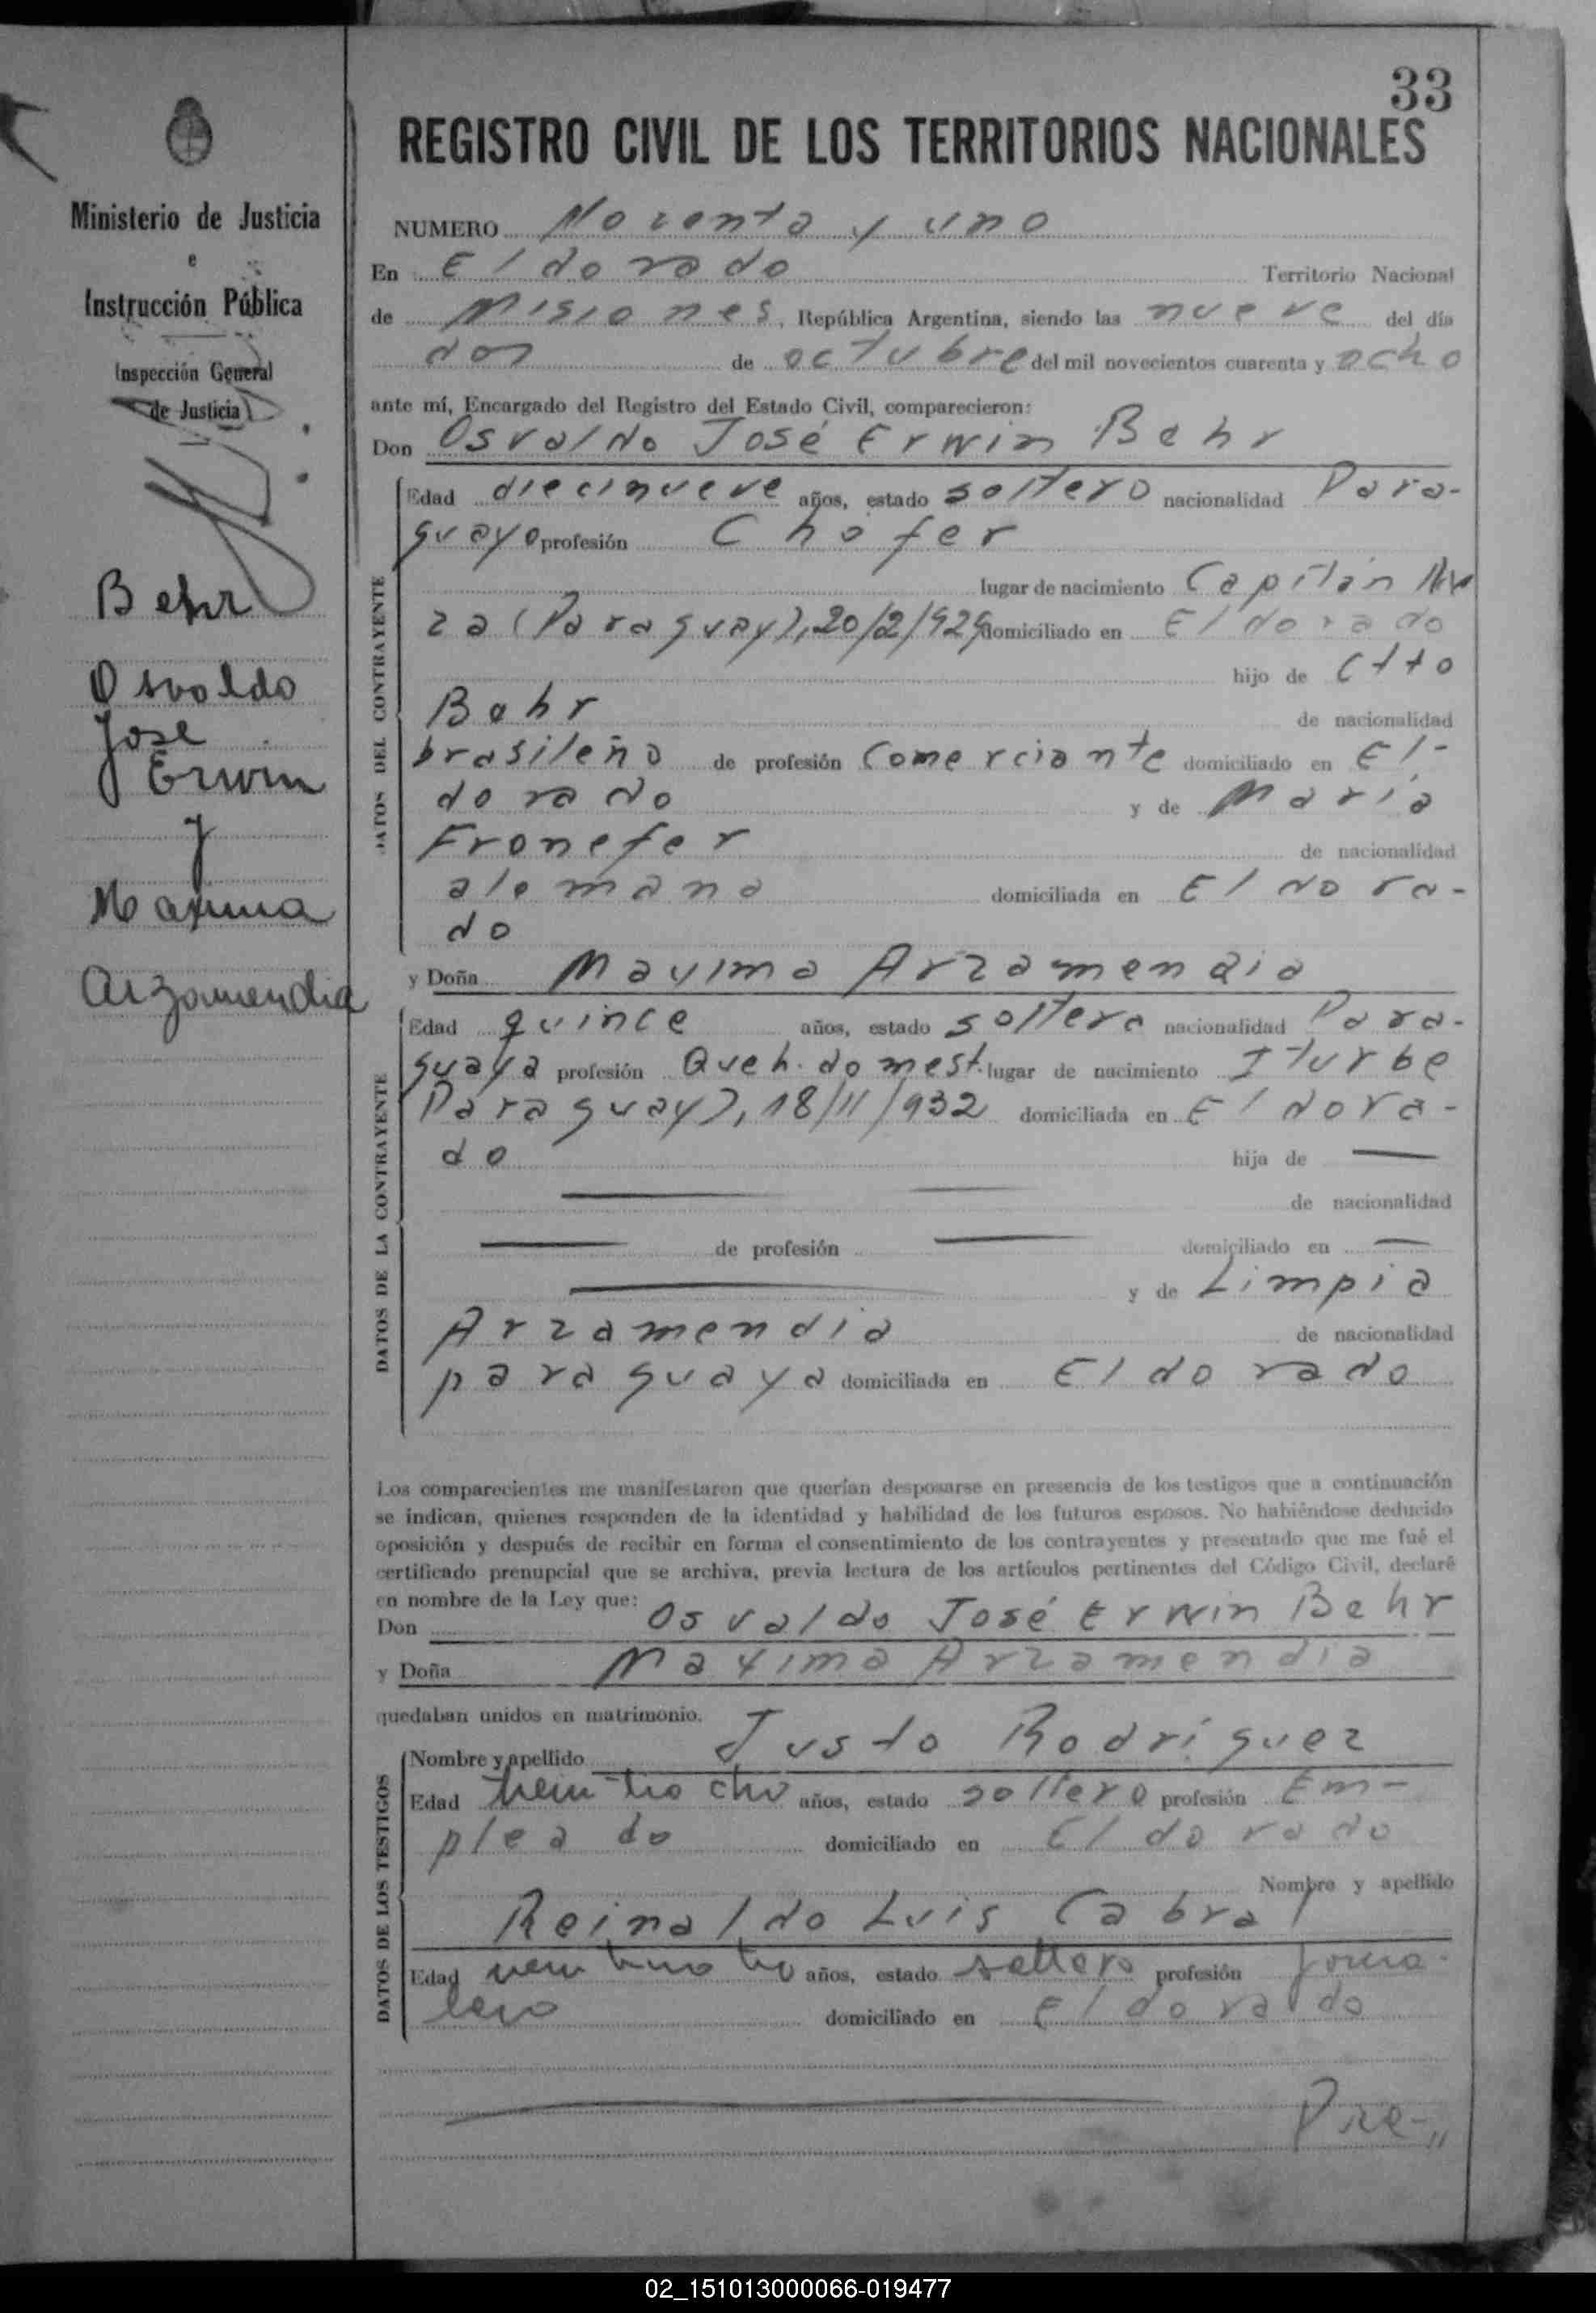 33
REGISTRO CIVIL DE LOS TERRITORIOS NACIONALES
Ministerio de Justicia
e
Instrucción Pública
Inspección General
de Justicia
Behr
Osvaldo
Jose
Erwin
y
Maxima
Arzamendia
NUMERO Noventa y uno
En Eldorado Territorio Nacional
de Misiones, República Argentina, siendo las nueve del día
dos de octubre del mil novecientos cuarenta y ocho
ante mí, Encargado del Registro del Estado Civil, comparecieron:
Don Osvaldo José Erwin Behr
DATOS DEL CONTRAYENTE
Edad diecinueve años, estado soltero nacionalidad Para-
guayo profesión Chofer
lugar de nacimiento Capitán
za (Paraguay), 20/2/929 domiciliado en Eldorado
hijo de Otto
Behr de nacionalidad
brasileño de profesión Comerciante domiciliado en El-
dorado y de María
Fronefer de nacionalidad
alemana domiciliada en Eldora-
do
y Doña Maxima Arzamendia
DATOS DE LA CONTRAYENTE
Edad quince años, estado soltera nacionalidad Para-
guaya profesión Queh. domest. lugar de nacimiento Iturbe
Paraguay), 18/11/932 domiciliada en Eldora-
do hija de —
— de nacionalidad
— de profesión — domiciliado en —
— y de Limpia
Arzamendia de nacionalidad
paraguaya domiciliada en Eldorado
Los comparecientes me manifestaron que querían desposarse en presencia de los testigos que a continuación
se indican, quienes responden de la identidad y habilidad de los futuros esposos. No habiéndose deducido
oposición y después de recibir en forma el consentimiento de los contrayentes y presentado que me fué el
certificado prenupcial que se archiva, previa lectura de los artículos pertinentes del Código Civil, declaré
en nombre de la Ley que:
Don Osvaldo José Erwin Behr
y Doña Maxima Arzamendia
quedaban unidos en matrimonio.
DATOS DE LOS TESTIGOS
Nombre y apellido Justo Rodríguez
Edad años, estado soltero profesión Em-
pleado domiciliado en Eldorado
Nombre y apellido
Reinaldo Luis Cabral
Edad años, estado soltero profesión Jorna-
lero domiciliado en Eldorado
02_151013000066-019477